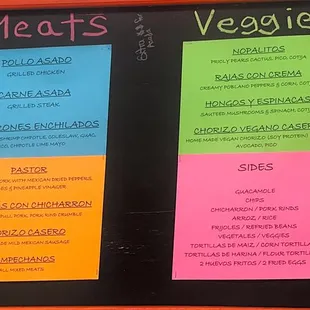 Meats
POLLO ASADO
GRILLED CHICKEN
CARNE ASADA
GRILLED STEAK
RONES ENCHILADOS
SHRIMP CHIPOTLE, COLESLAW, GUAC,
CO, CHIPOTLE LIME MAYO
PASTOR
ORK WITH MEXICAN DRIED PEPPERS,
& PINEAPPLE VINAGER
AS CON CHICHARRON
PULL PORK, PORK RIND CRUMBLE
ORIZO CASERO
DE MILD MEXICAN SAUSAGE
MPECHANOS
ALL MIXED MEATS
Extra $3
Veggie
NOPALITOS
PRICLY PEARS CACTUS, PICO, COTIJA
RAJAS CON CREMA
CREAMY POBLANO PEPPERS & CORN, COT
HONGOS Y ESPINACAS
SAUTEED MUSHROOMS & SPINACH, COTI
CHORIZO VEGANO CASER
HOME MADE VEGAN CHORIZO (SOY PROTEIN)
AVOCADO, PICO
SIDES
GUACAMOLE
CHIPS
CHICHARRON / PORK RINDS
ARROZ / RICE
FRIJOLES / REFRIED BEANS
VEGETALES / VEGGIES
TORTILLAS DE MAIZ / CORN TORTILLA
TORTILLAS DE HARINA / FLOUR TORTILL
2 HUEVOS FRITOS / 2 FRIED EGGS